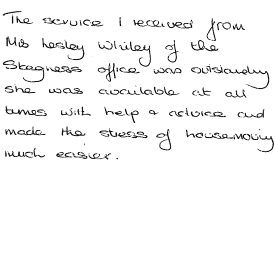 The service I received from
Mrs Lesley Whiley of the
Skegness office was outstanding
she was available at all
times with help & advice and
made the stress of housemoving
much easier.